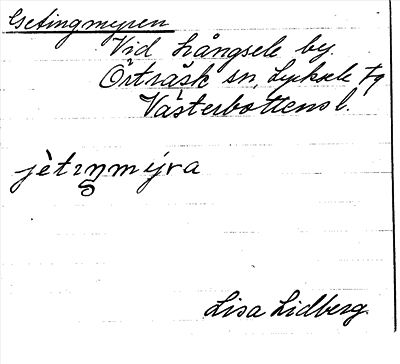 Getingmyren
Vid Långsele by.
Örträsk sn, Lycksele tg
Västerbottens l.
jètiŋmýra
Lisa Lidberg